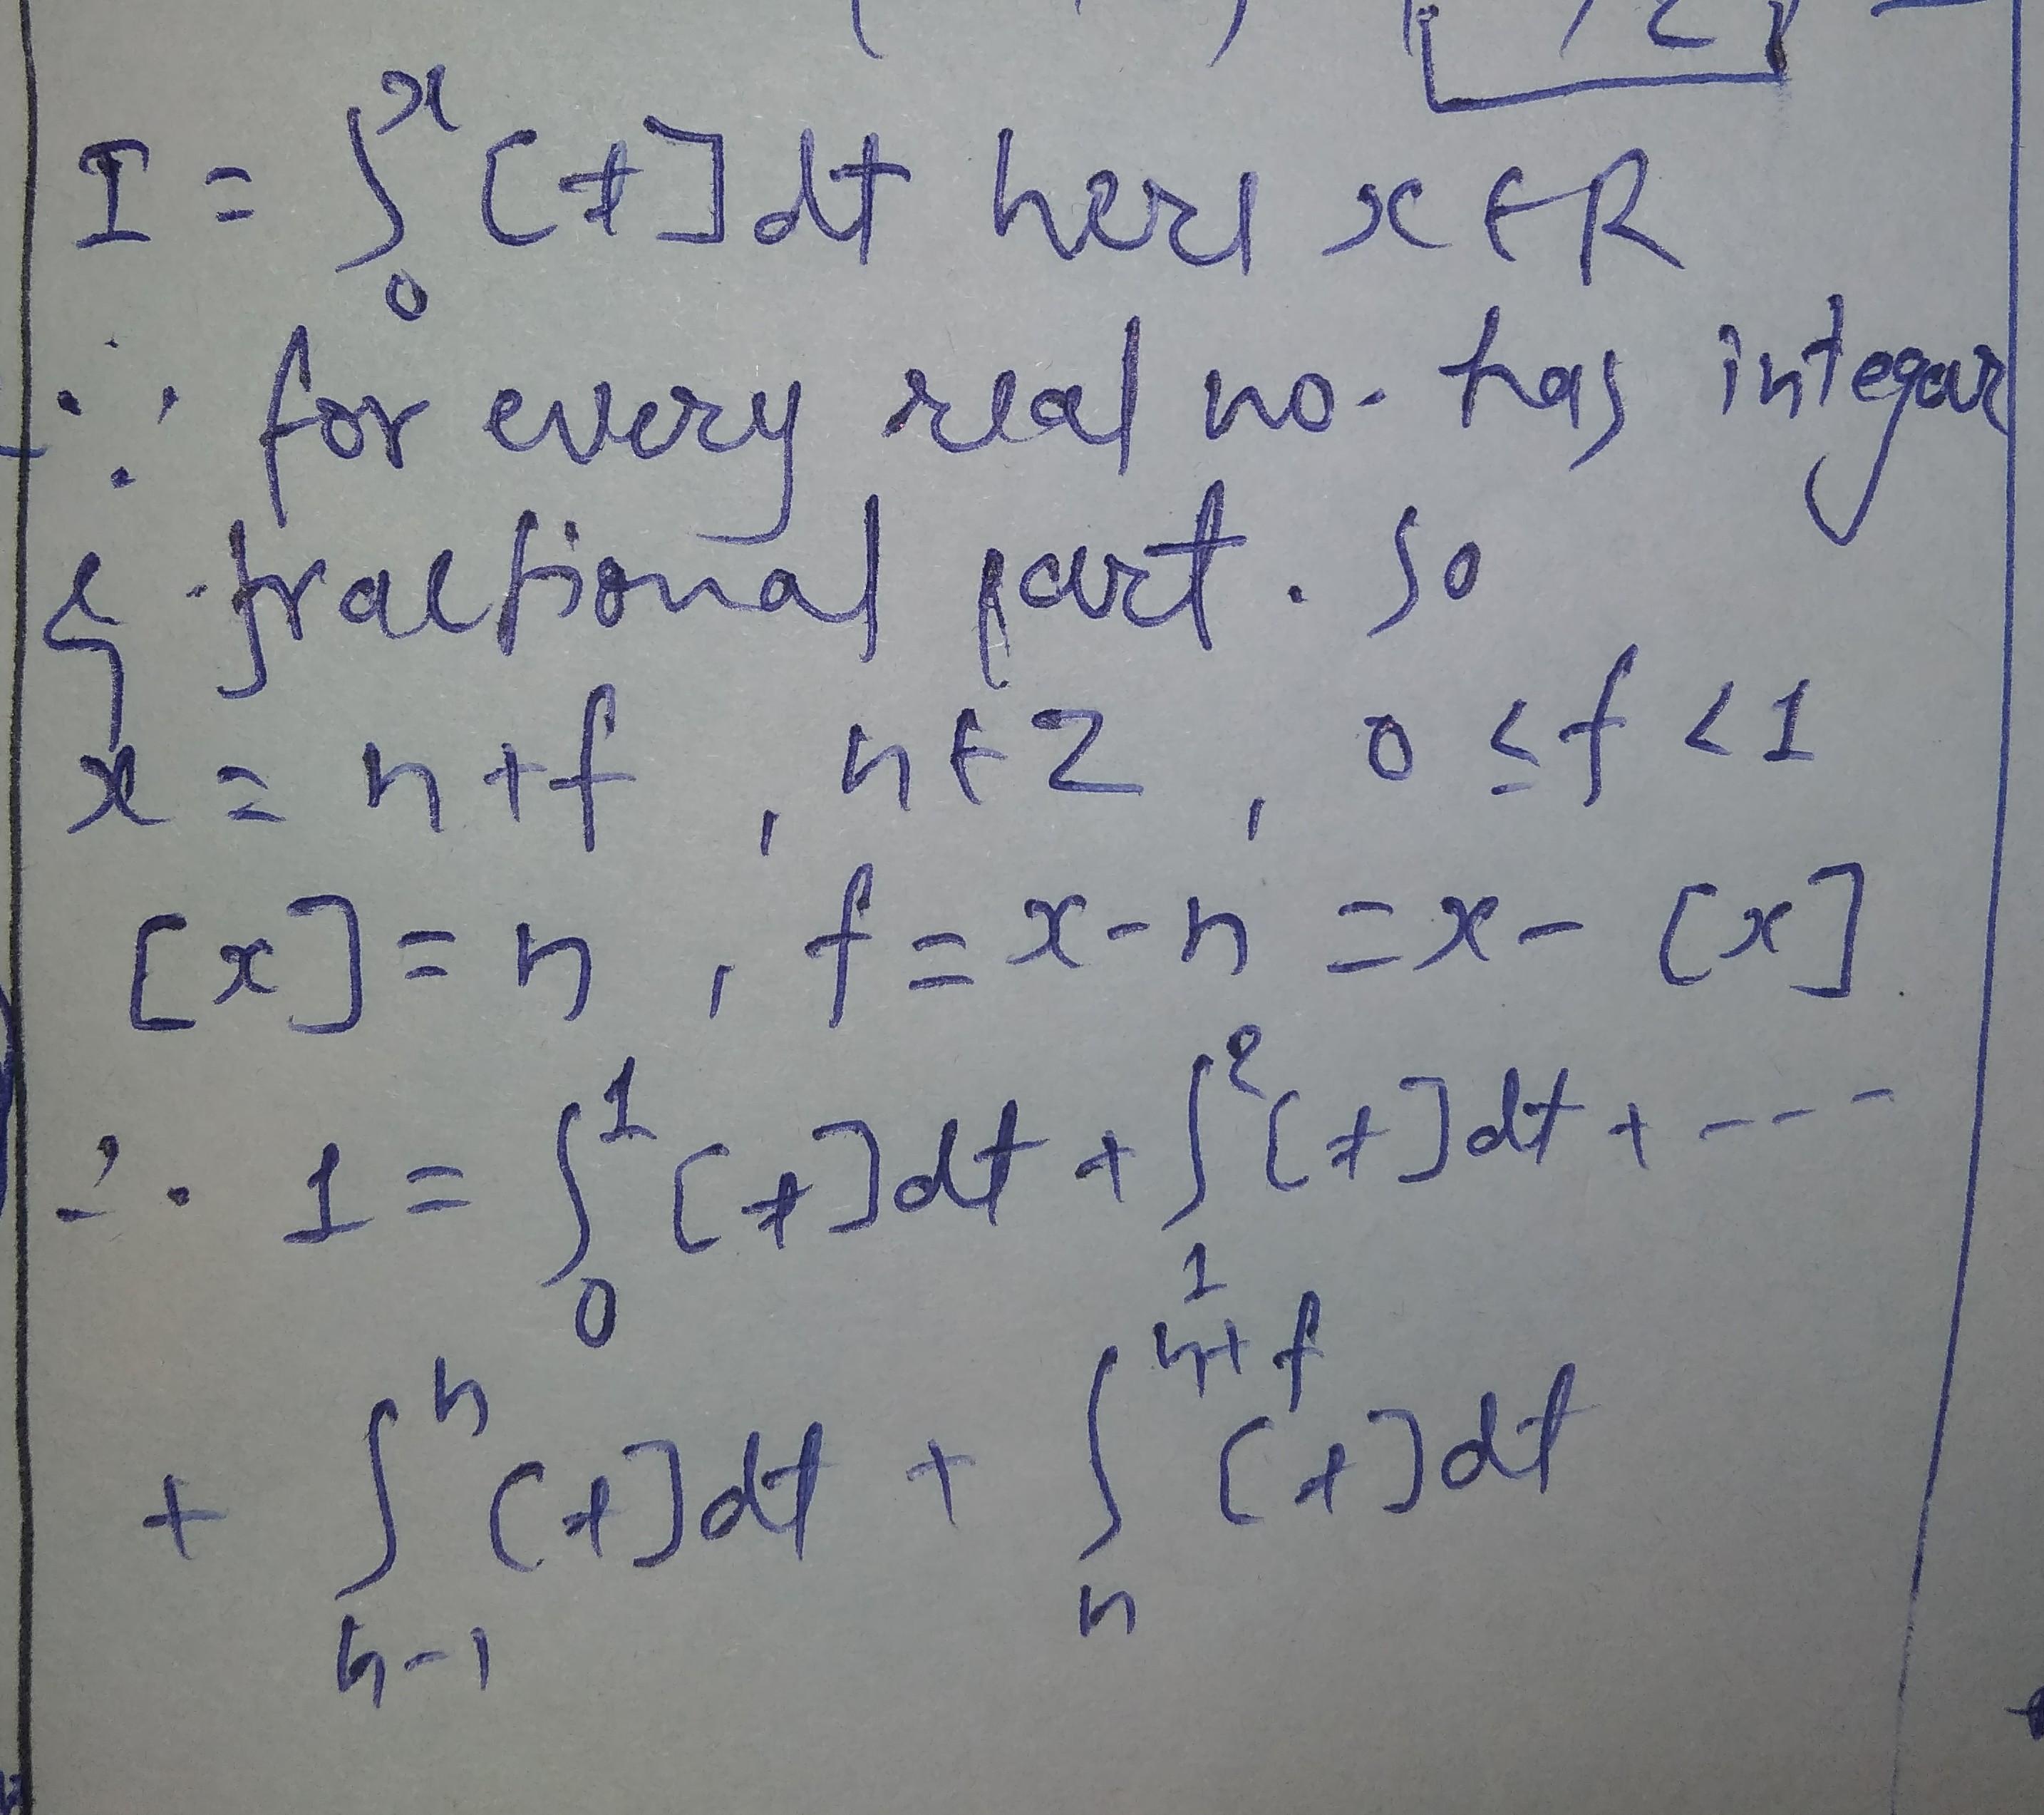 I = ∫₀ˣ [t] dt here x ∈ R
∵ for every real no. has integar
& fractional part. so
x = n + f , n ∈ Z , 0 ≤ f < 1
[x] = n , f = x - n = x - [x]
∴ I = ∫₀¹ [t] dt + ∫₁² [t] dt + ----
+ ∫ₙ₋₁ⁿ [t] dt + ∫ₙⁿ⁺ᶠ [t] dt